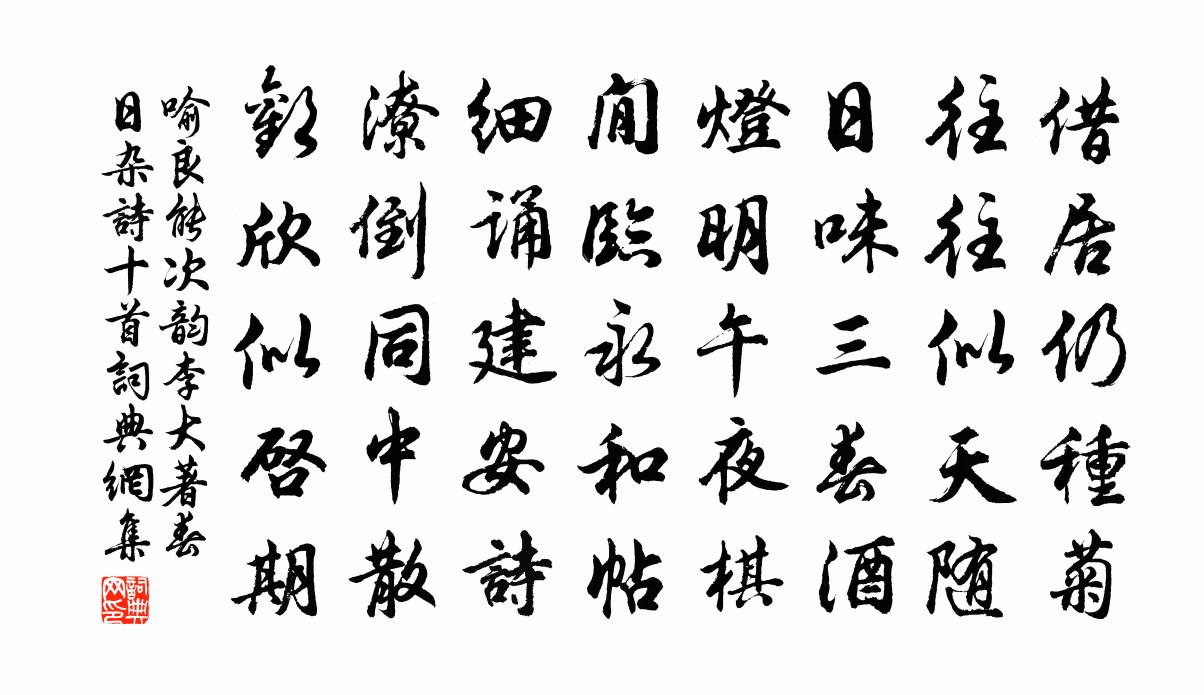 借居仍種菊
往往似天随
日味三春酒
燈明午夜棋
閒臨永和帖
细诵建安詩
潦倒同中散
歡欣似啓期
喻良能次韵李大著春
日杂詩十首詞典網集